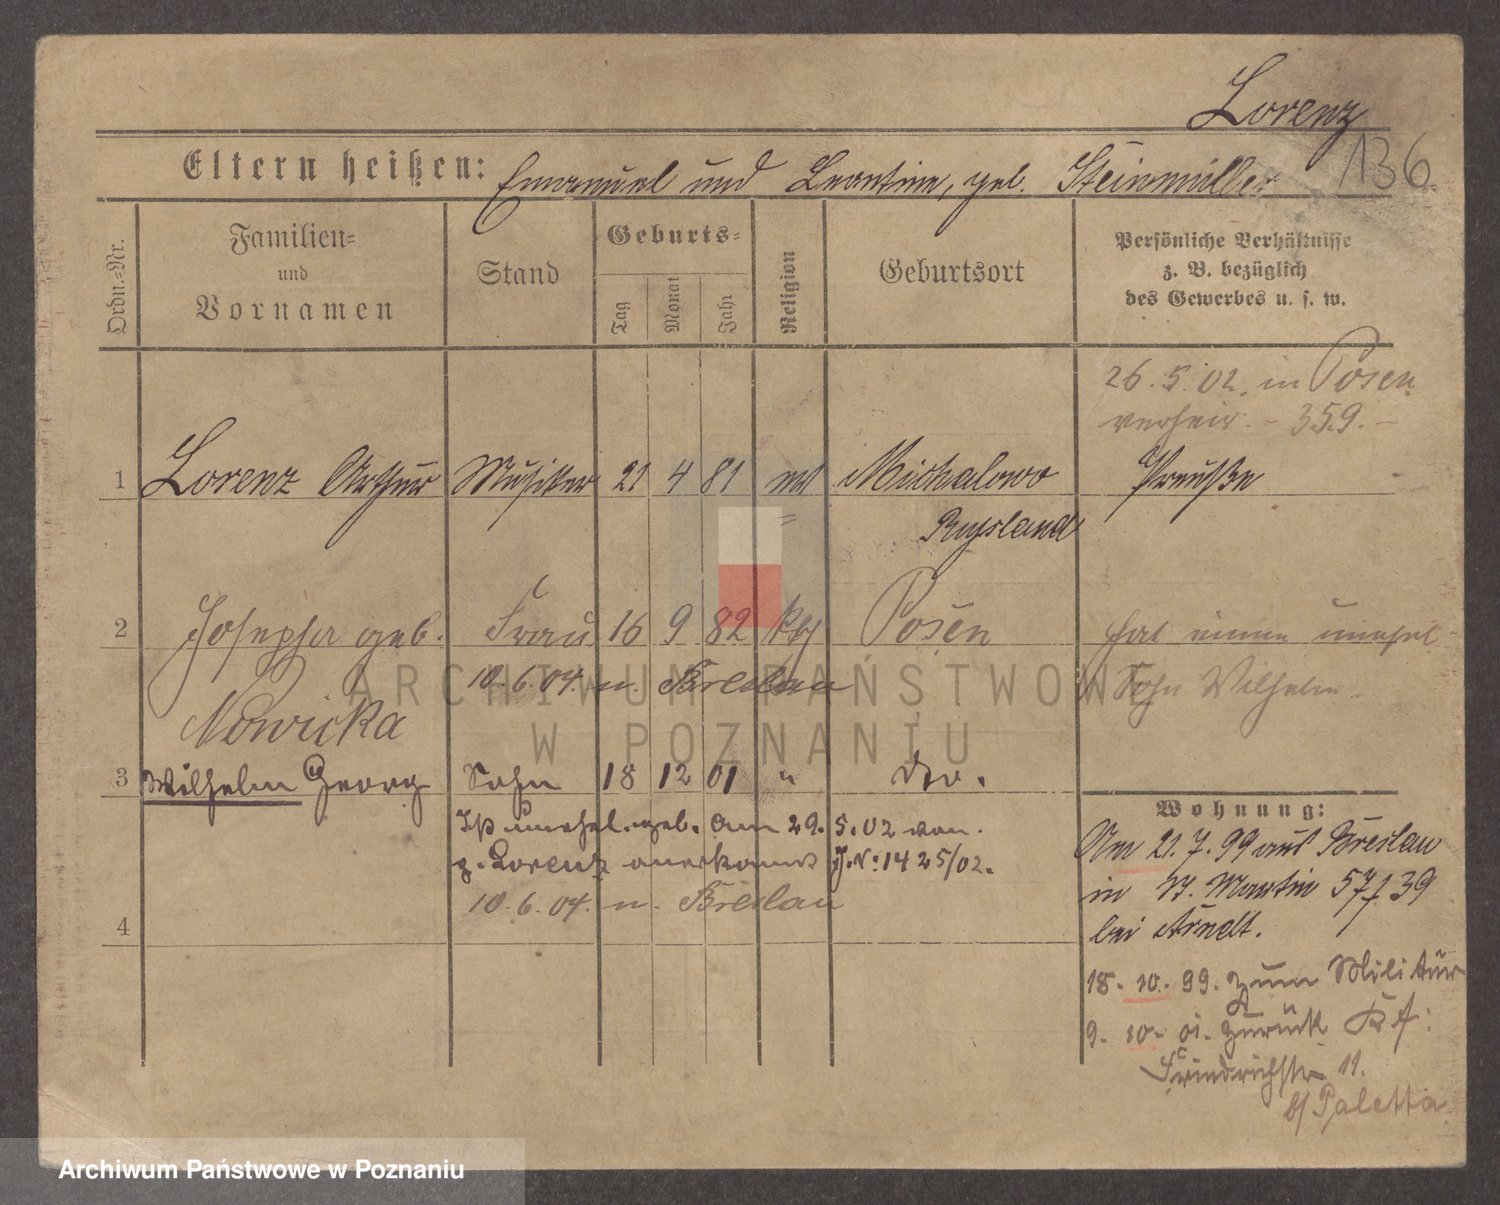 Lorenz
136
Eltern heißen: Emanuel und Leontine, geb. Steinmüller
Ordn.-Nr.
Familien- und Vornamen
Stand
Geburts-
Tag
Monat
Jahr
Religion
Geburtsort
Persönliche Verhältnisse
z. B. bezüglich
des Gewerbes u. s. w.
26. 5. 02. in Posen
verheir. - 359. -
1 Lorenz Arthur Musiker 21 4 81 ev Michalowo Preuße
Russland
2 Josepha geb. Frau 16 9 82 kth Posen hat einen unehel.
10. 6. 04. n. Breslau Sohn Wilhelm.
Nowicka
3 Wilhelm Georg Sohn 18 12 01 " Do.
Ist unehel. geb. Am 29. 5. 02 von
z. Lorenz anerkannt J. N: 1425/02.
10. 6. 04. n. Breslau
4
Wohnung:
Am 21. 7. 99 aus Breslau
in St. Martin 57 39
bei Arndt.
18. 10. 99. zum Militär
9. 10. 01. zurück
Friedrichstr 11.
b/ Paletta
ARCHIWUM PAŃSTWOWE
W POZNANIU
Archiwum Państwowe w Poznaniu